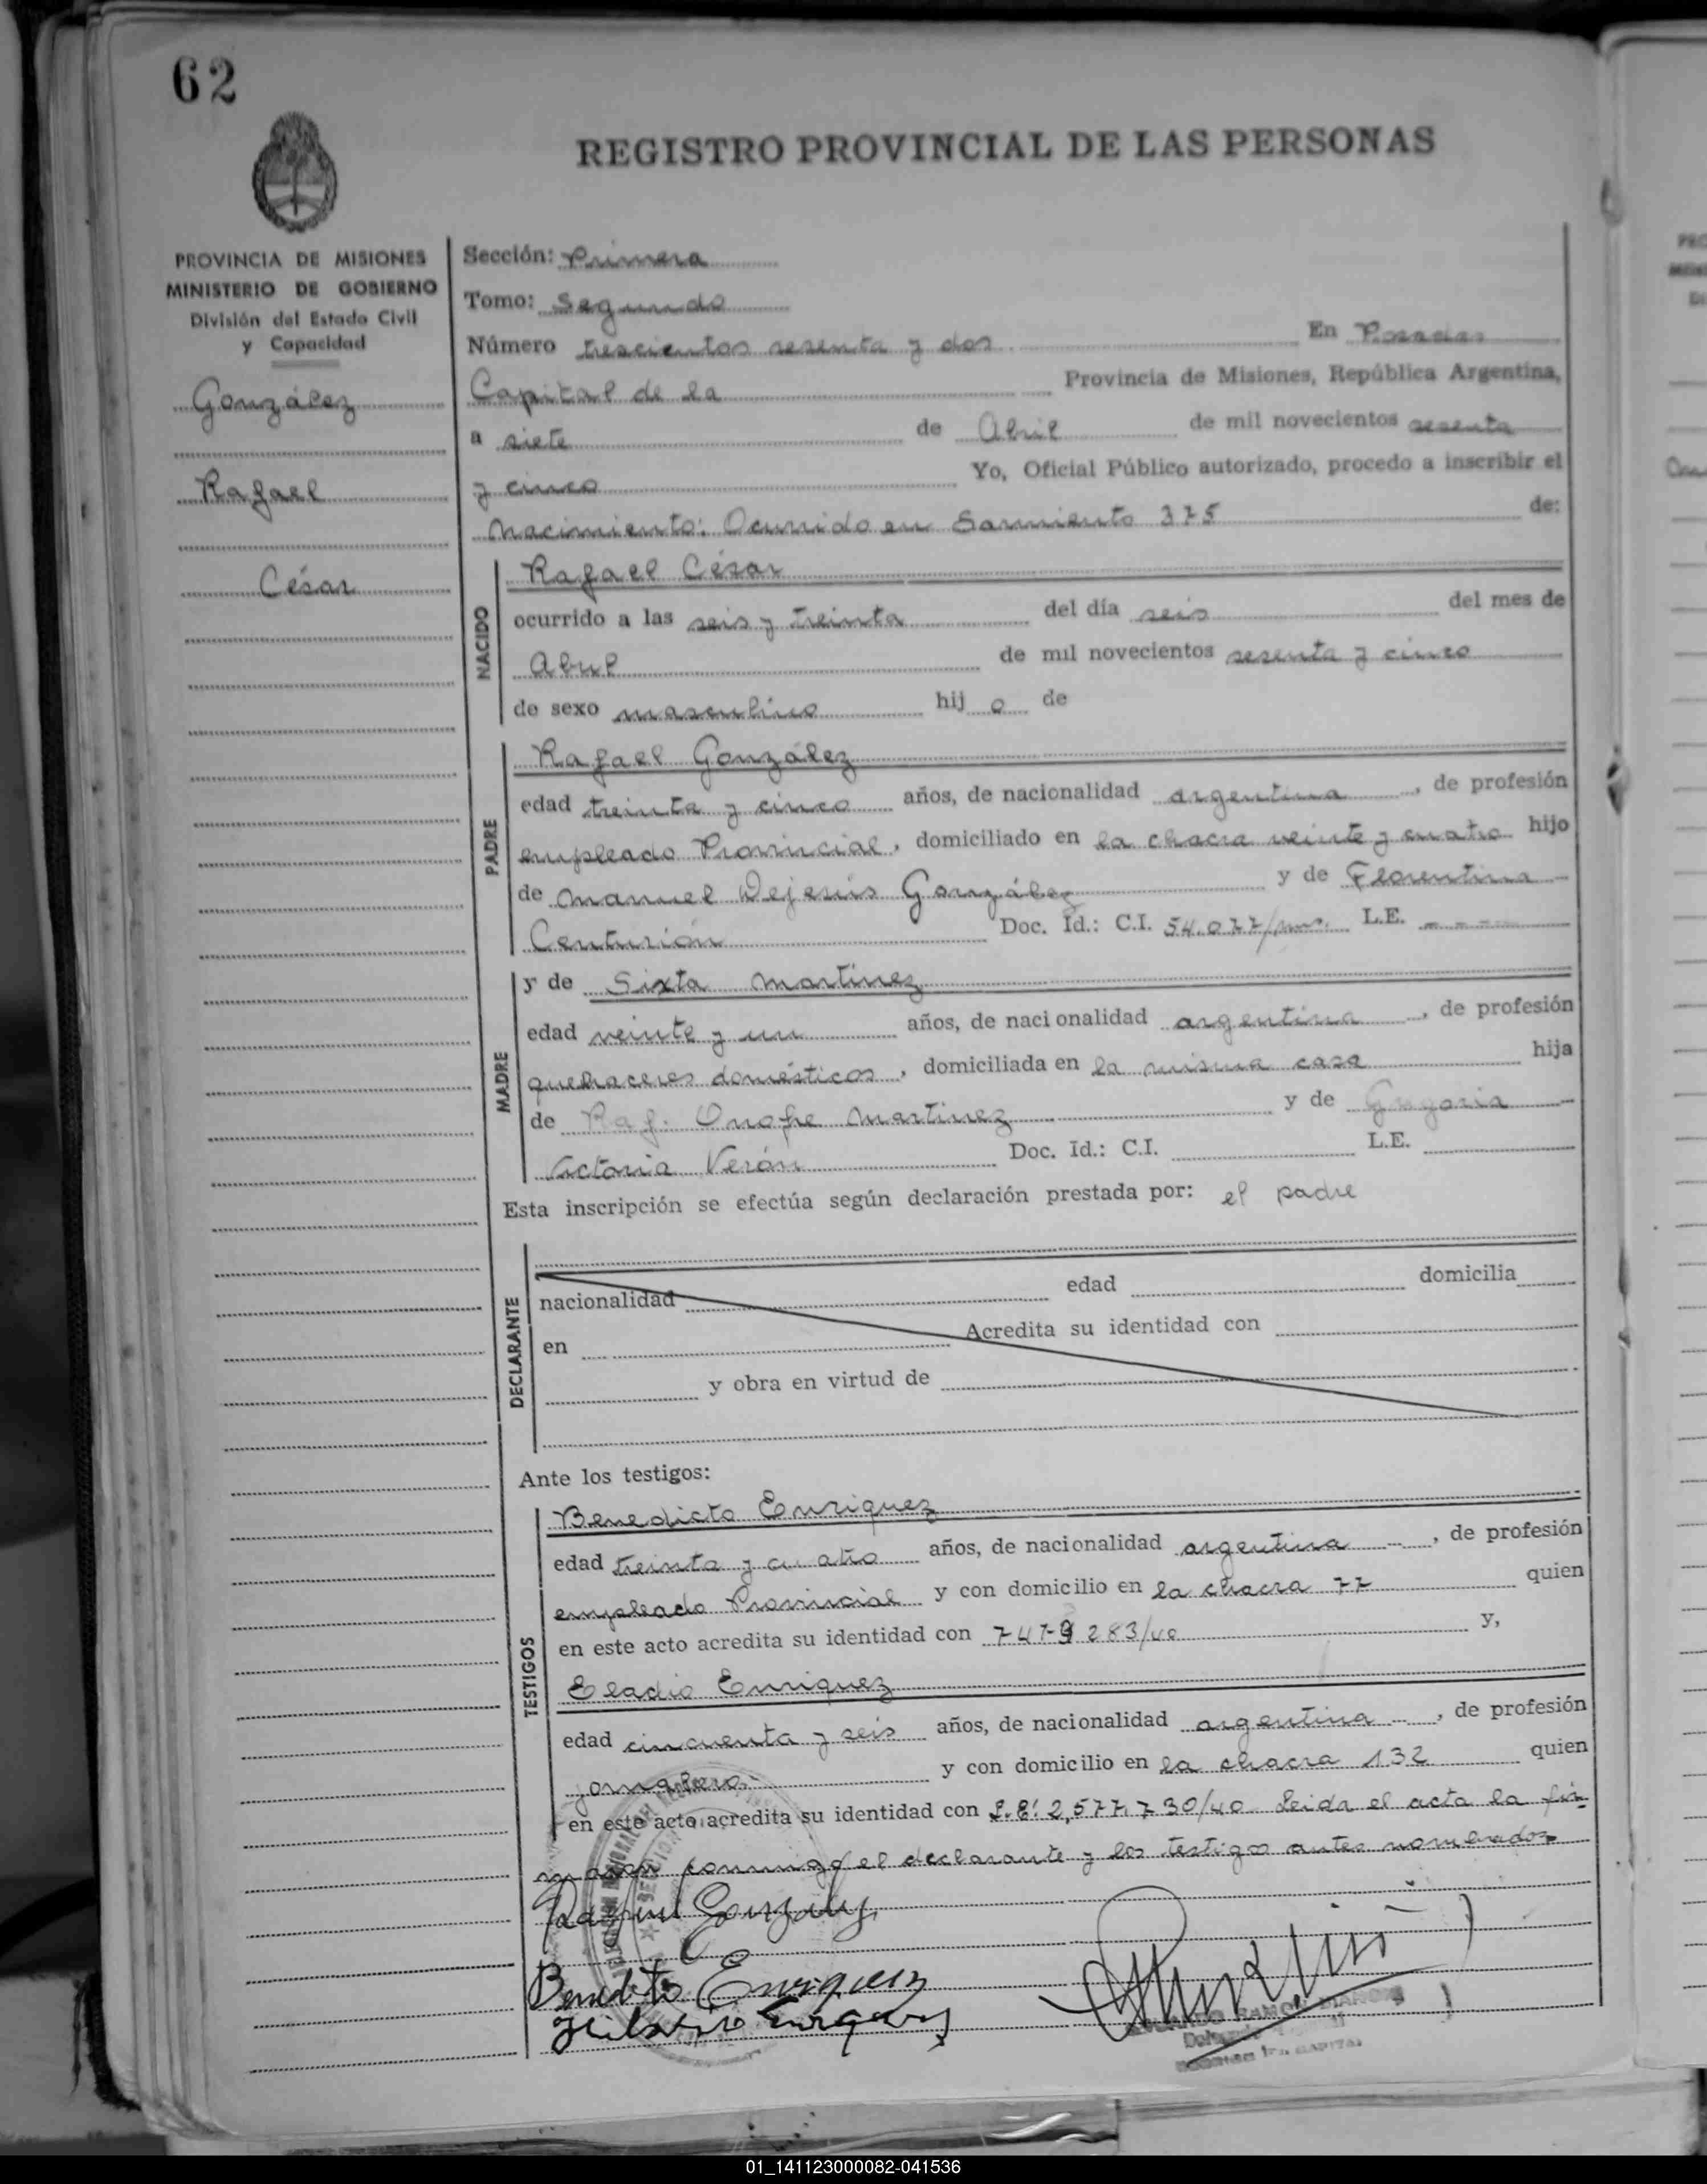 62
REGISTRO PROVINCIAL DE LAS PERSONAS
PROVINCIA DE MISIONES
MINISTERIO DE GOBIERNO
División del Estado Civil
y Capacidad
González
Rafael
César
Sección: Primera
Tomo: Segundo
Número trescientos sesenta y dos En Posadas
Capital de la Provincia de Misiones, República Argentina,
a siete de Abril de mil novecientos sesenta
y cinco Yo, Oficial Público autorizado, procedo a inscribir el
Nacimiento: Ocurrido en Sarmiento 375 de:
NACIDO
Rafael César
ocurrido a las seis y treinta del día seis del mes de
Abril de mil novecientos sesenta y cinco
de sexo masculino hijo de
PADRE
Rafael González
edad treinta y cinco años, de nacionalidad argentina, de profesión
empleado Provincial, domiciliado en la chacra veinte y cuatro hijo
de Manuel Dejesús González y de Florentina
Centurión Doc. Id.: C.I. 54.077/ L.E. - - - -
MADRE
y de Sixta Martínez
edad veinte y un años, de nacionalidad argentina, de profesión
quehaceres domésticos, domiciliada en la misma casa hija
de Raf. Onofre Martinez y de Gregoria
Victoria Verón Doc. Id.: C.I. L.E.
Esta inscripción se efectúa según declaración prestada por: el padre
DECLARANTE
nacionalidad edad domicilia
en Acredita su identidad con
y obra en virtud de
Ante los testigos:
TESTIGOS
Benedicto Enriquez
edad treinta y cuatro años, de nacionalidad argentina, de profesión
empleado Provincial y con domicilio en la chacra 77 quien
en este acto acredita su identidad con y,
Eladio Enriquez
edad cincuenta y seis años, de nacionalidad argentina, de profesión
jornalero.- y con domicilio en la chacra 132 quien
en este acto acredita su identidad con L.E: 2,577.730/40 Leida el acta la fir-
man conmigo el declarante y los testigos antes nombrados
Rafael Gonzalez
Benedicto Enriquez
Enriquez
RAMON
01_141123000082-041536